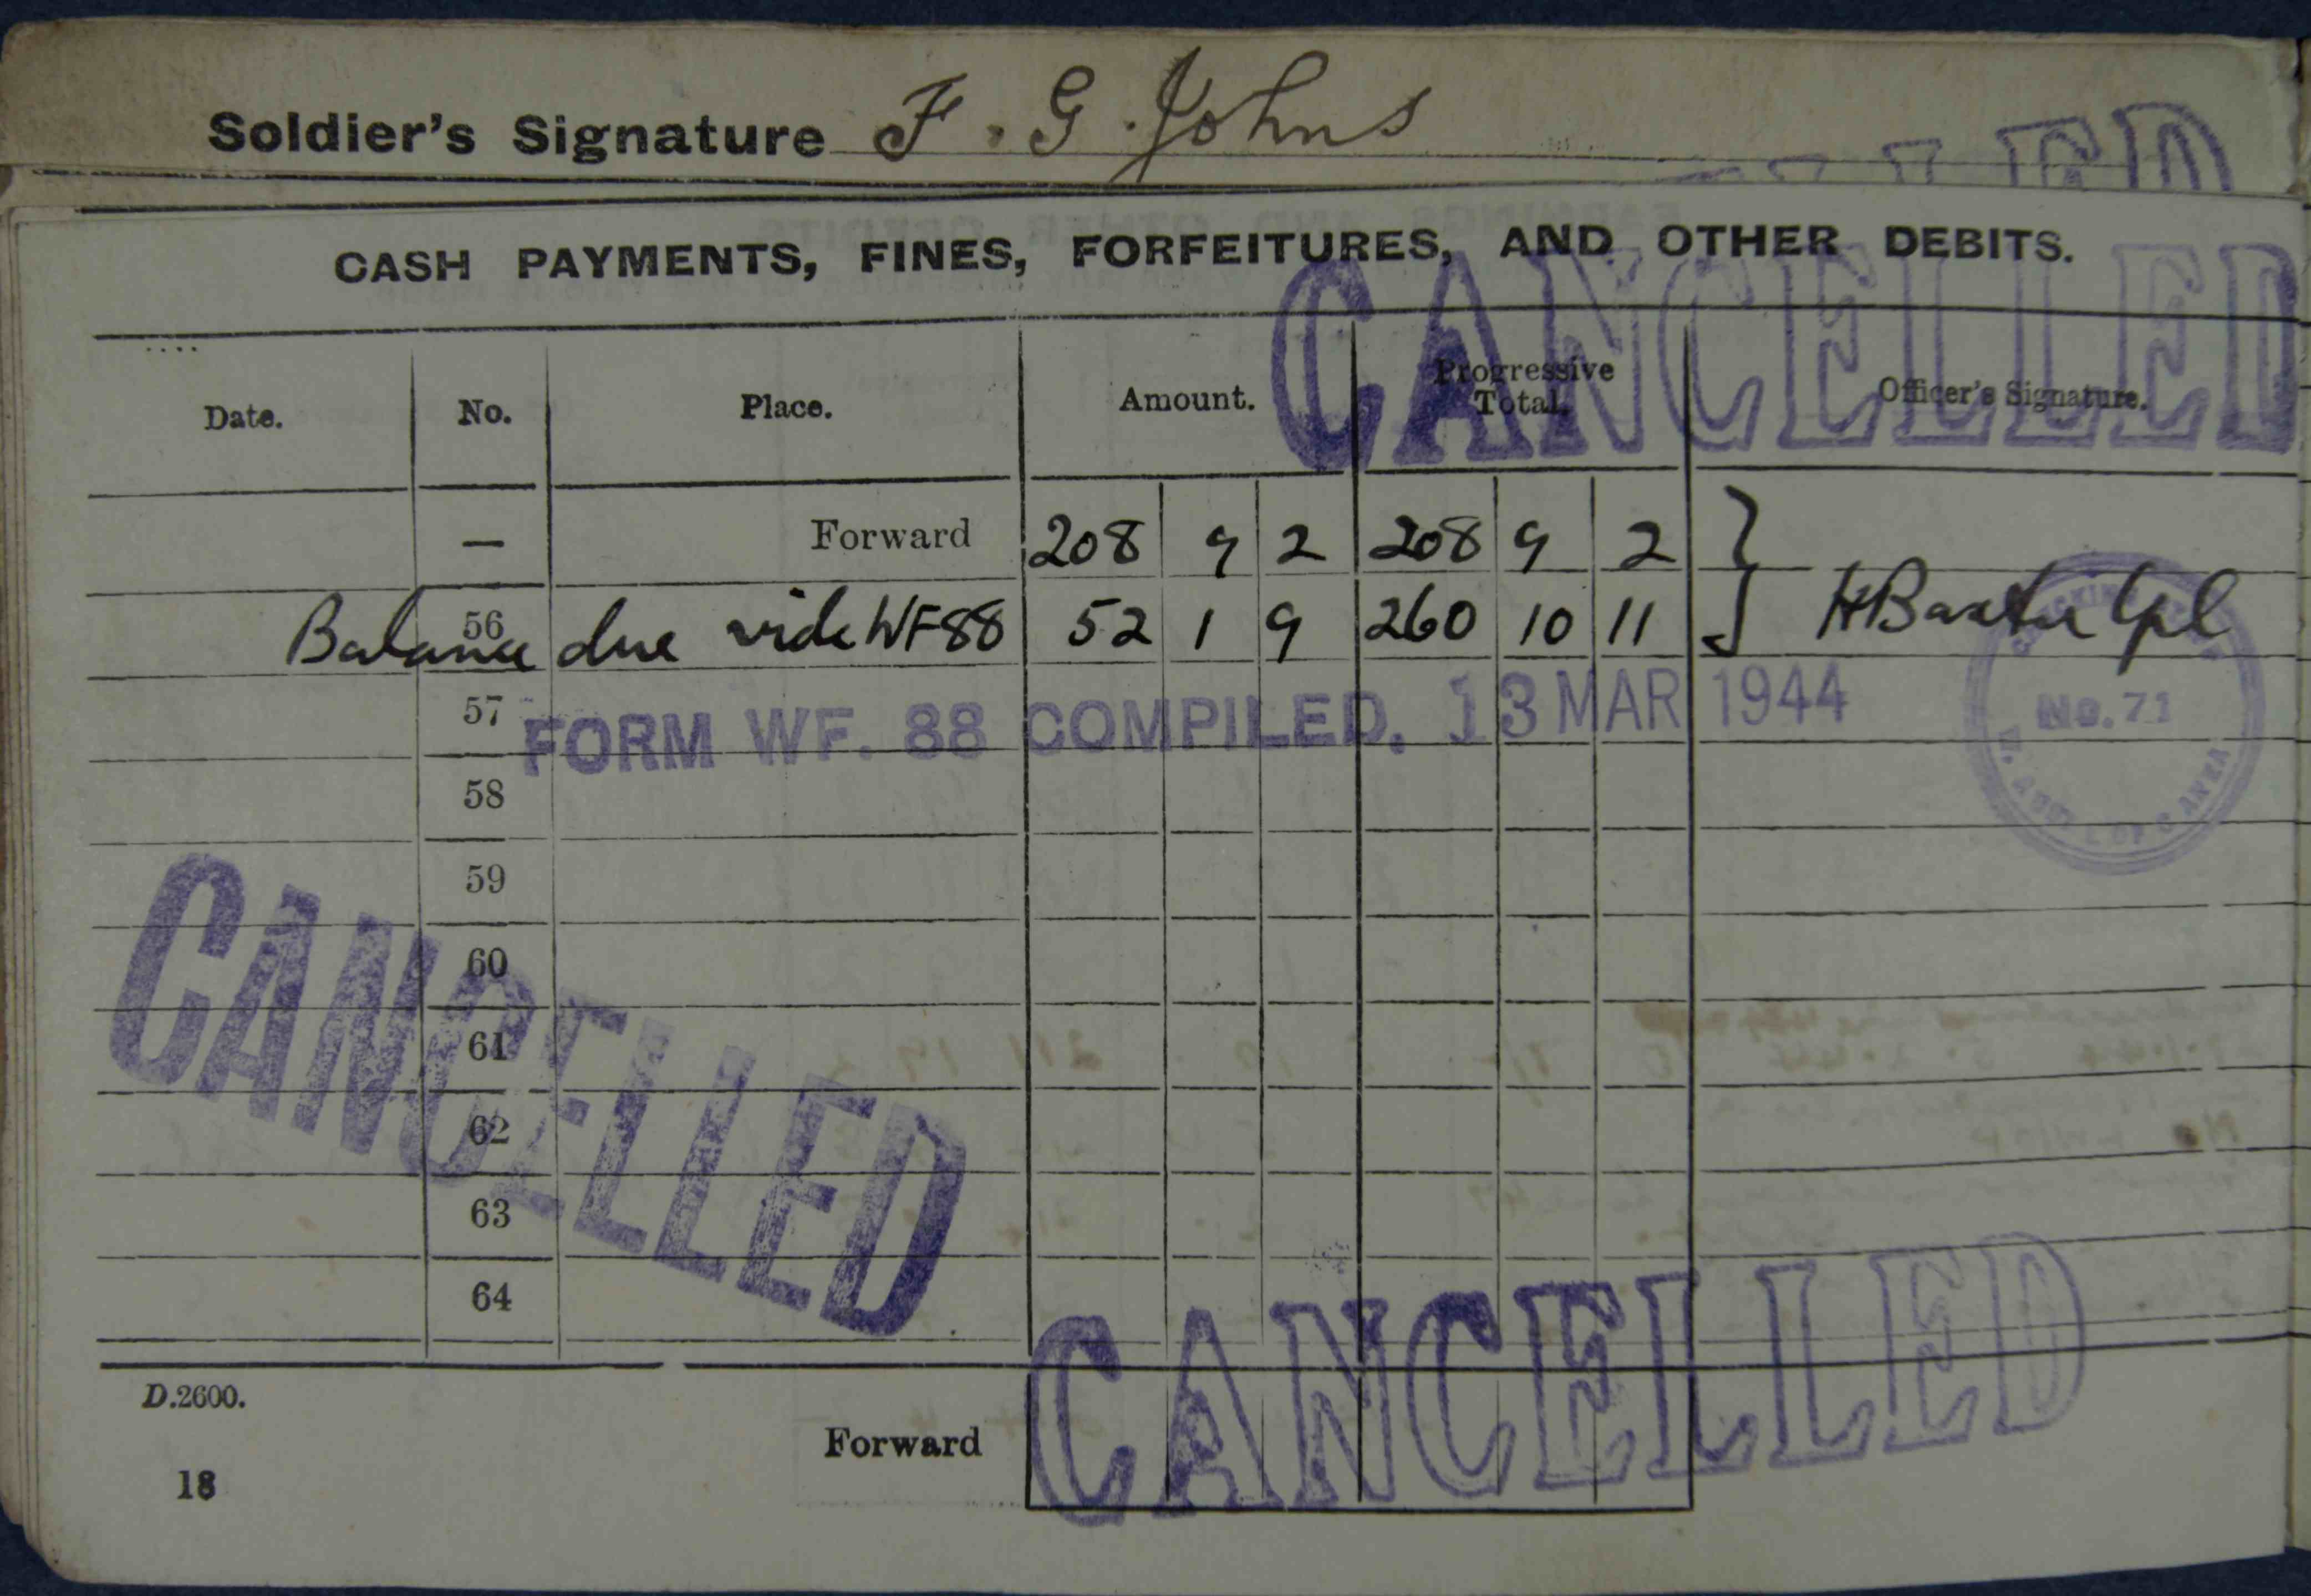 Soldier's Signature F. G. Johns
CASH PAYMENTS, FINES, FORFEITURES, AND OTHER DEBITS.
CANCELLED
Date. No. Place. Amount. Progressive Total. Officer's Signature.
— Forward 208 9 2 208 9 2
56 Balance due vide WF88 52 1 9 260 10 11 Cpl
57
FORM WF. 88 COMPILED. 13 MAR 1944
No. 71
58
59
60
61
62
63
64
CANCELLED
CANCELLED
D.2600.
Forward
18